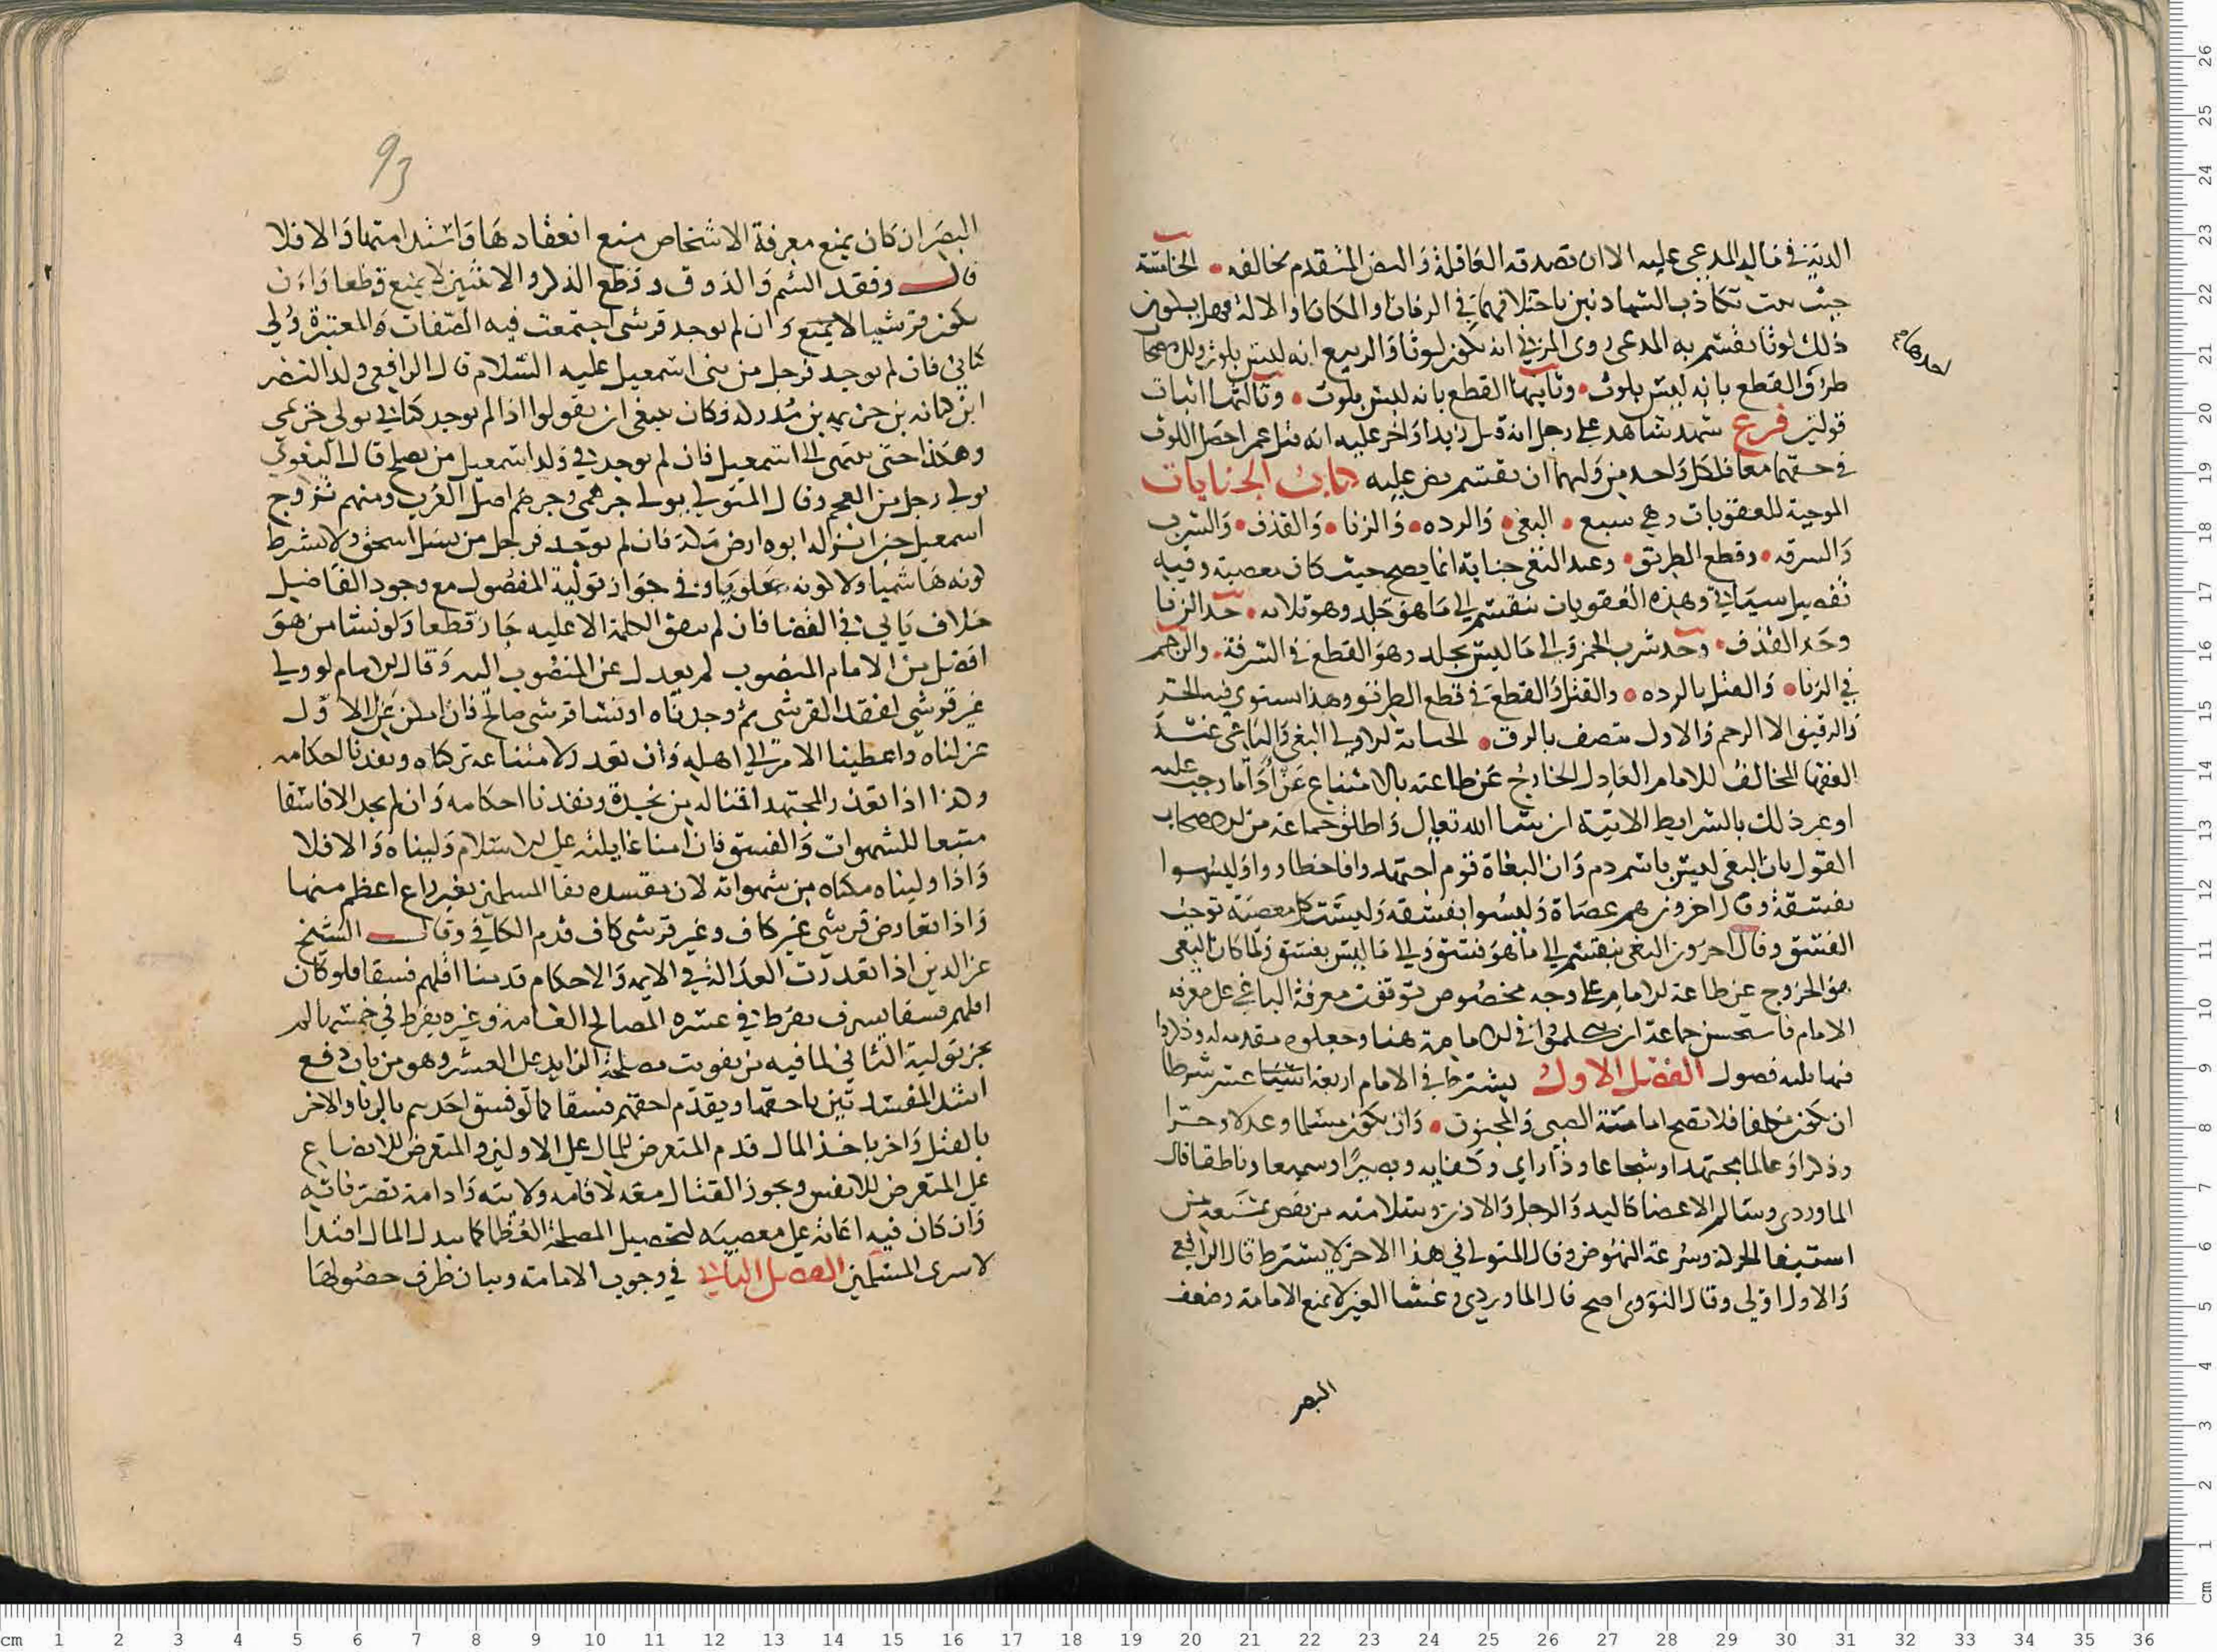 الدية في مال المدعى عليه الا ان تصدقه العاقلة والنص المتقدم يخالفه • الخامسة
حيث تكاذب الشهادتين باختلافهما في الزمان او المكان او الالة فهل يكون
احدها
ذلك لوثا يقسم به المدعي روى المزني انه يكون لوثا والربيع انه ليس بلوث وللاصحاب
طرق القطع بانه ليس بلوث • وثانيها القطع بانه ليس بلوث • وثالثها اثبات
قولين فرع شهد شاهد على رجل انه قتل زيدا واخر عليه انه قتل عمرا حصل اللوث
في حقهما معا فلكل واحد من وليهما ان يقسم نص عليه كتاب الجنايات
الموجبة للعقوبات وهي سبع • البغي • والرده • والزنا • والقذف • والشرب
والسرقه • وقطع الطريق • وعد البغي جناية انما يصح حيث كان معصية وفيه
تفصيل سياتي وهذه العقوبات تنقسم الى ما هو جلد وهو ثلاثه • حد الزنا
وحد القذف • وحد شرب الخمر والى ما ليس بجلد وهو القطع في السرقة • والرجم
في الزنا • والقتل بالرده • والقتل والقطع في قطع الطريق وهذا يستوي فيه الحر
والرقيق الا الرجم والاول يتنصف بالرق • الجناية الاولى البغي والباغي عند
الفقها المخالف للامام العادل الخارج عن طاعته بالامتناع عن اداء ما وجب عليه
او غير ذلك بالشرايط الاتية ان شا الله تعالى واطلق جماعة من الاصحاب
القول بان البغي ليس باسم ذم وان البغاة قوم اجتهدوا فاخطاوا وليسوا
بفسقة وقال اخرون هم عصاة وليسوا بفسقه وليست كل معصية توجب
الفسق وقال اخرون البغي ينقسم الى ما هو فسق والى ما ليس بفسق ولما كان البغي
هو الخروج عن طاعة الامام على وجه مخصوص توقفت معرفة الباغي على معرفة
الامام فاستحسن جماعة ان يتكلموا في الامامة هنا وجعلوه مقدمة له وذكروا
فيها ثلثه فصول الفصل الاول يشترط في الامام اربعة عشر شرطا
ان يكون مكلفا فلا تصح امامة الصبي والمجنون • وان يكون مسلما وعدلا وحرا
وذكرا وعالما مجتهدا وشجاعا وذا راي وكفايه وبصيرا وسميعا وناطقا قال
الماوردي وسالم الاعضا كاليد والرجل والاذن وسلامته من نقص يمنع من
استيفا الحركة وسرعة النهوض وقال المتولي في هذا الاخر لا يشترط قال الرافعي
والاول اولى وقال النووي اصح قال الماوردي وغشا العين لا يمنع الامامة وضعف
البصر
93
البصر ان كان يمنع معرفة الاشخاص منع انعقادها واستدامتها والا فلا
قال وفقد الشم والذوق وقطع الذكر والانثيين لا يمنع قطعا وان
يكون قرشيا لا يمنع وان لم يوجد قرشي اجتمعت فيه الصفات المعتبرة ولي
كناني فان لم يوجد فرجل من بني اسمعيل عليه السلام قال الرافعي ولد النضر
ابن كنانه بن خزيمه بن مدركه فكان ينبغي ان يقولوا اذا لم يوجد كناني يولى خزيمي
وهكذا حتى ينتهى الى اسمعيل فان لم يوجد في ولد اسمعيل من يصلح قال البغوي
يولى رجل من العجم وقال المتولي يولى جرهمي وجرهم اصل العرب ومنهم تزوج
اسمعيل حين انزله ابوه ارض مكة فان لم يوجد فرجل من نسل اسحق ولا يشترط
كونه هاشميا ولا كونه علويا وفي جواز تولية المفضول مع وجود الفاضل
خلاف ياتي في القضا فان لم تتفق الكلمة الا عليه جاز قطعا ولو نشا من هو
افضل من الامام المنصوب لم يعدل عن المنصوب اليه وقال الامام لو ولي
غير قرشي لفقد القرشي ثم وجدناه او نشا قرشي صالح فان امكن عزل الاول
عزلناه واعطينا الامر الى اهله وان تعذر لامتناعه تركناه ونفذنا احكامه
وهذا اذا تعذر المجتهد اقتنا له من نجدة ونفذنا احكامه وان لم يجد الا فاسقا
متبعا للشهوات والفسق فان امنا غايلته على الاسلام وليناه والا فلا
واذا وليناه مكناه من شهواته لان مفسده بقا المسلمين بغير راع اعظم منها
واذا تعارض قرشي غير كاف وغير قرشي كاف قدم الكافي وقال الشيخ
عز الدين اذا تعذرت العدالة في الايمه والاحكام قدمنا اقلهم فسقا فلو كان
اقلهم فسقا يسرف يفرط في عشره المصالح العامه وغيره يفرط في خمسها لم
يجز تولية الثاني لما فيه من تفويت مصلحة الزايد على العشر وهو من باب دفع
اشد المفسدتين باخفهما ويقدم اخفهم فسقا كما لو فسق احدهم بالزنا والاخر
بالقتل واخر باخذ المال قدم المتعرض للمال على الاولين والمتعرض للابضاع
على المتعرض للانفس ويجوز القتال معه لاقامه ولايته وادامة تصرفاته
وان كان فيه اعانة على معصيه لتحصيل المصلحة العظما كما يبدل المال افتدا
لاسرى المسلمين الفصل الثاني في وجوب الامامة وبيان طرف حصولها